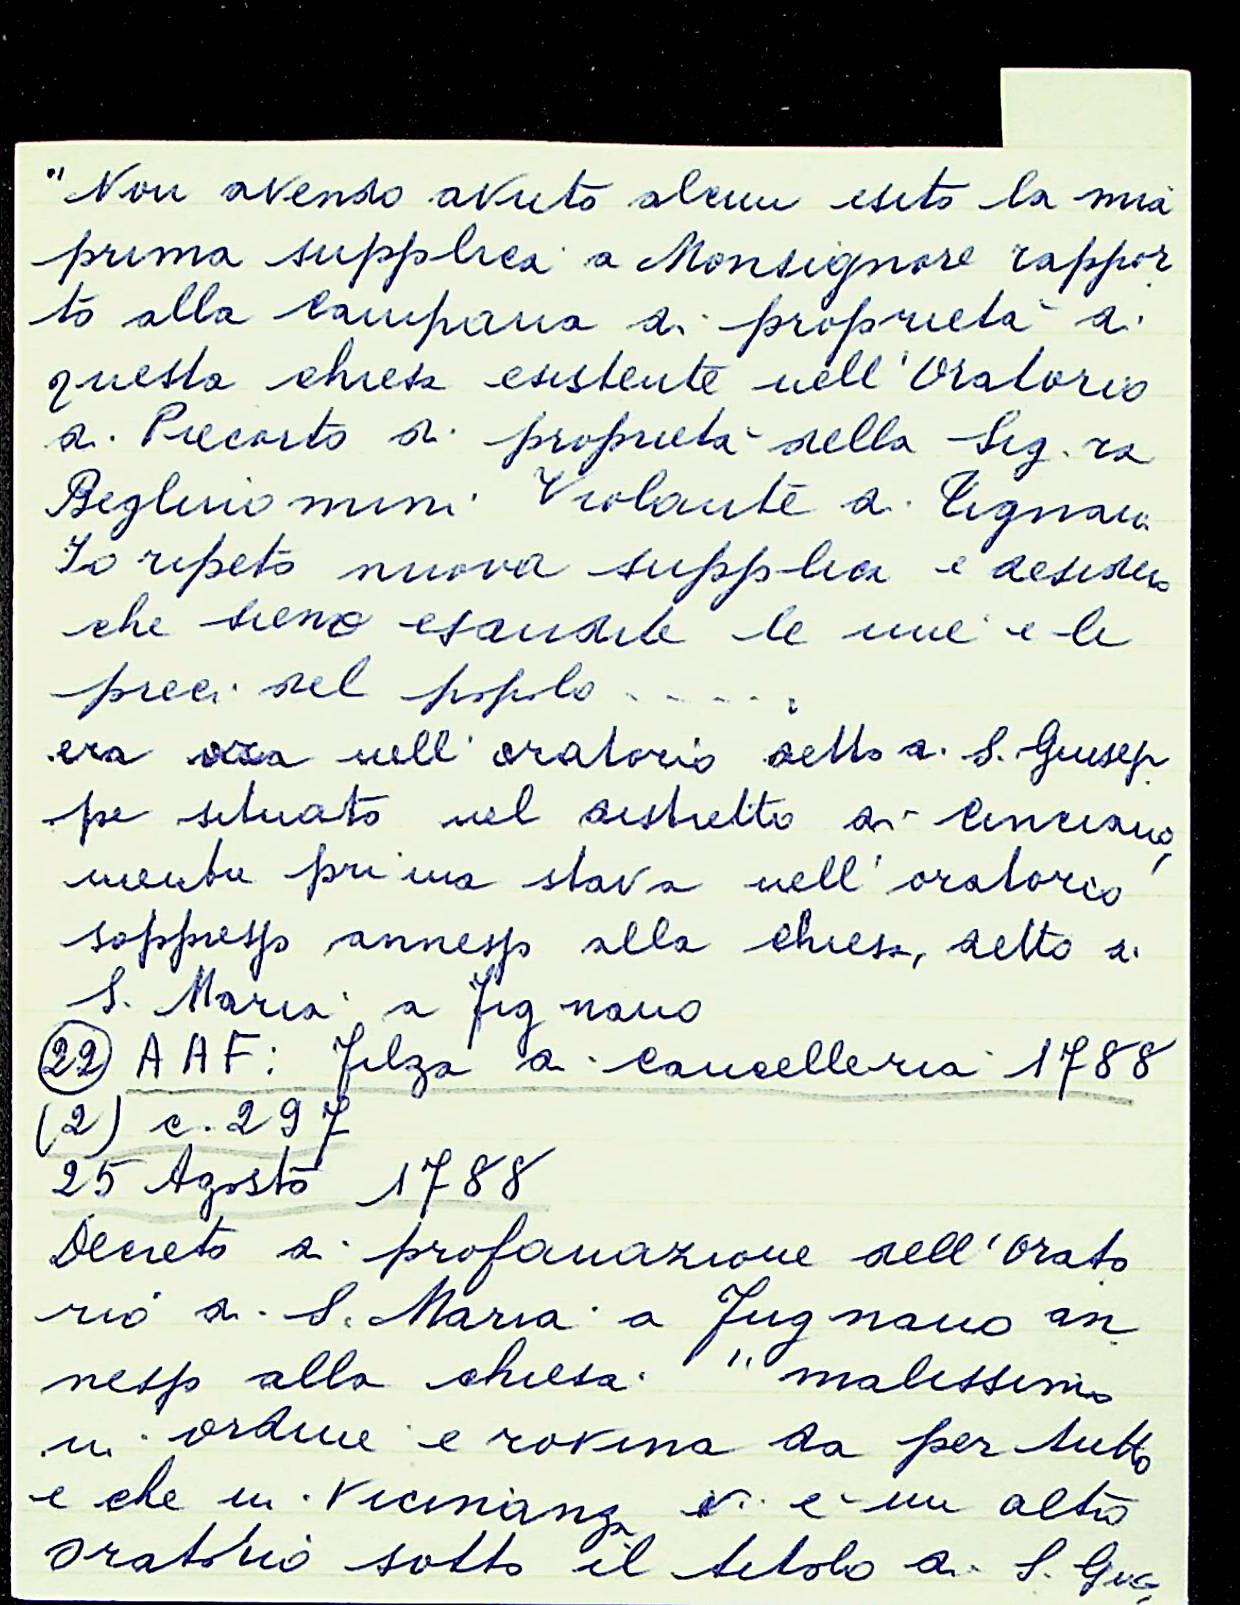 "Non avendo avuto alcun esito la mia
prima supplica a Monsignore rappor
to alla campana di proprietà di
questa chiesa esistente nell'Oratorio
di Piecorto di proprietà della Sig.ra
Begliuiomini Violante di
Io ripeto nuova supplica e desidero
che sieno esaudite le mie e le
preci del popolo . . . . . .
era ora nell'oratorio detto di S. Giusep
pe situato nel distretto di Cinciano,
mentre prima stava nell'oratorio
soppresso annesso alla chiesa, detto di
S. Maria a Fignano
(22) AAF: Filza di cancelleria 1788
(2) c. 297
25 Agosto 1788
Decreto di profanazione dell'Orato
rio di S. Maria a Fignano an
nesso alla chiesa "malissimo
in ordine e rovina da per tutto
e che in vicinanza vi è un altro
oratorio sotto il titolo di S. Giu